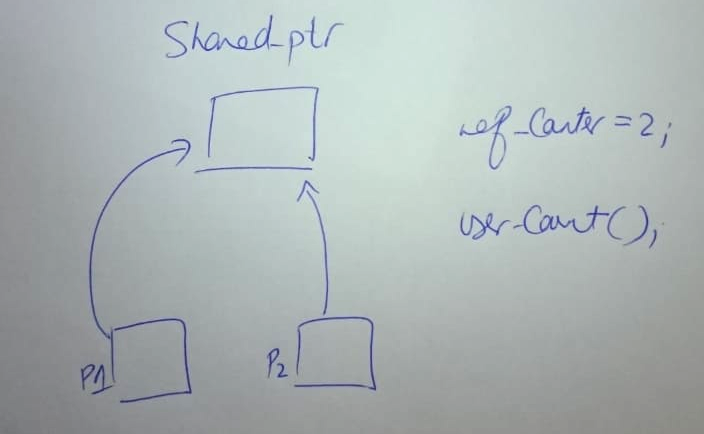 Shared_ptr
ref_Counter = 2;
user_Count();
P1
P2